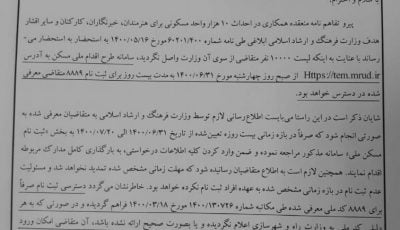 با سلام و احترام؛
پیرو تفاهم نامه منعقده همکاری در احداث ۱۰ هزار واحد مسکونی برای هنرمندان، خبرنگاران، کارکنان و سایر اقشار
هدف وزارت فرهنگ و ارشاد اسلامی ابلاغی طی نامه شماره ۶۰۲۰۱/۴۰۰ مورخ ۱۴۰۰/۰۵/۱۶ به استحضار می
رساند با عنایت به اینکه لیست ۱۰۰۰۰ نفر متقاضی از سوی آن وزارت واصل گردید، سامانه طرح اقدام ملی مسکن به آدرس
Https://tem.mrud.ir از صبح روز چهارشنبه مورخ ۱۴۰۰/۰۶/۳۱ به مدت بیست روز برای ثبت نام ۸۸۸۹ متقاضی معرفی
شده در دسترس خواهد بود.
شایان ذکر است در این راستا می‌بایست اطلاع‌رسانی لازم توسط وزارت فرهنگ و ارشاد اسلامی به متقاضیان معرفی شده به
صورتی انجام شود که صرفاً در بازه زمانی بیست روزه تعیین‌شده از تاریخ ۱۴۰۰/۰۶/۳۱ الی ۱۴۰۰/۰۷/۲۰ به بخش «ثبت نام
مسکن ملی» سامانه مذکور مراجعه نموده و ضمن وارد کردن کلیه اطلاعات درخواستی، به بارگذاری کامل مدارک مربوطه
اقدام نمایند. همچنین لازم است به اطلاع متقاضیان رسانیده شود که مهلت زمانی مشخص شده تمدید نخواهد شد و مسئولیت
عدم ثبت نام در بازه زمانی مشخص شده به عهده افراد ثبت نام نکرده خواهد بود. خاطرنشان می‌گردد دسترسی ثبت نام صرفاً
برای ۸۸۸۹ کد ملی معرفی شده طی مکاتبه شماره ۱۴۰۰/۱۳۰۷۲۶ مورخ ۱۴۰۰/۰۳/۱۸ فراهم گردیده و در صورتی که به هر
کد ملی به وزارت راه و شهرسازی اعلام نگردیده و یا بصورت صحیح ارائه نشده باشد، آن متقاضی امکان ورود